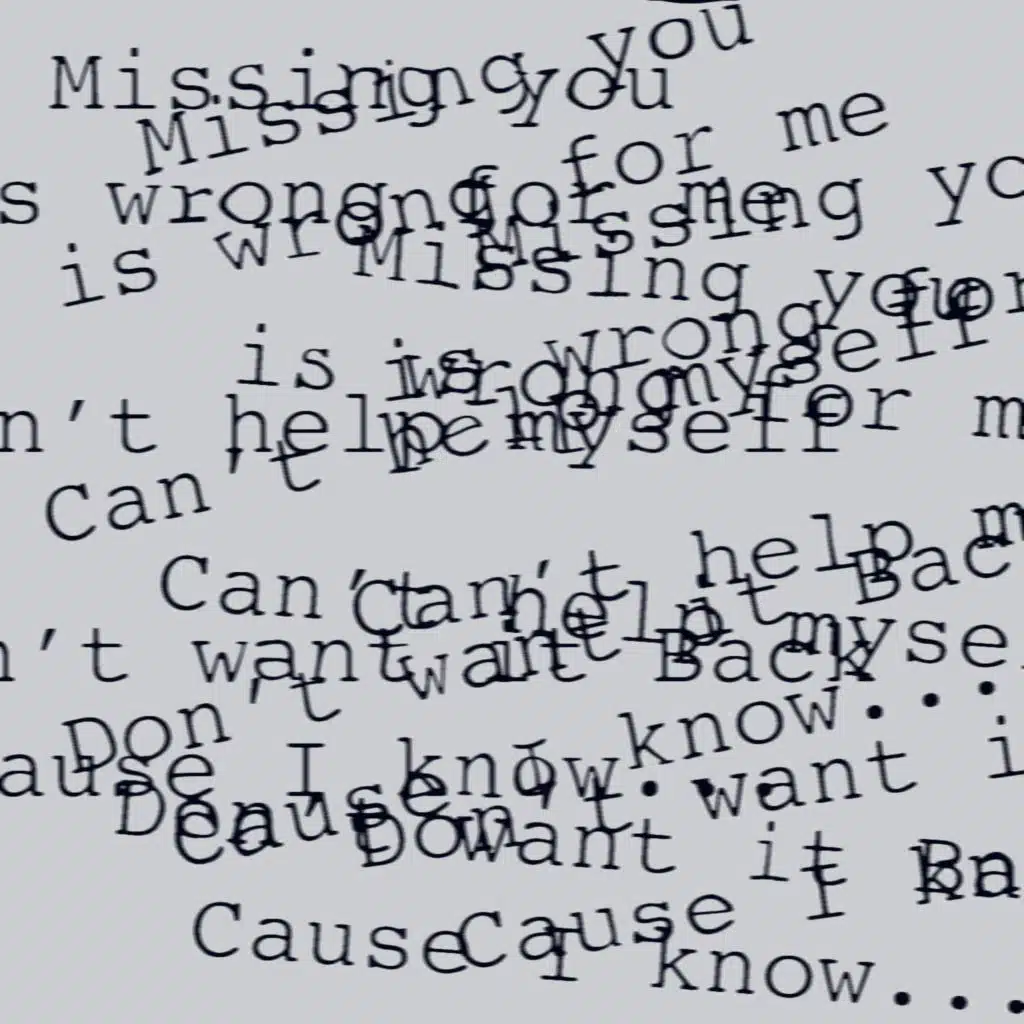 Missing you
Missing you
s wrong for me
is wrong for me
Missing yo
Missing you
is wrong for
is wrong for m
n't help myself
Can't help myself
Can't help m
Can't help myse
n't want it Back
Don't want it Bac
ause I know...
Cause I know...
Don't want i
Don't want it Ba
Cause I kn
Cause I know...